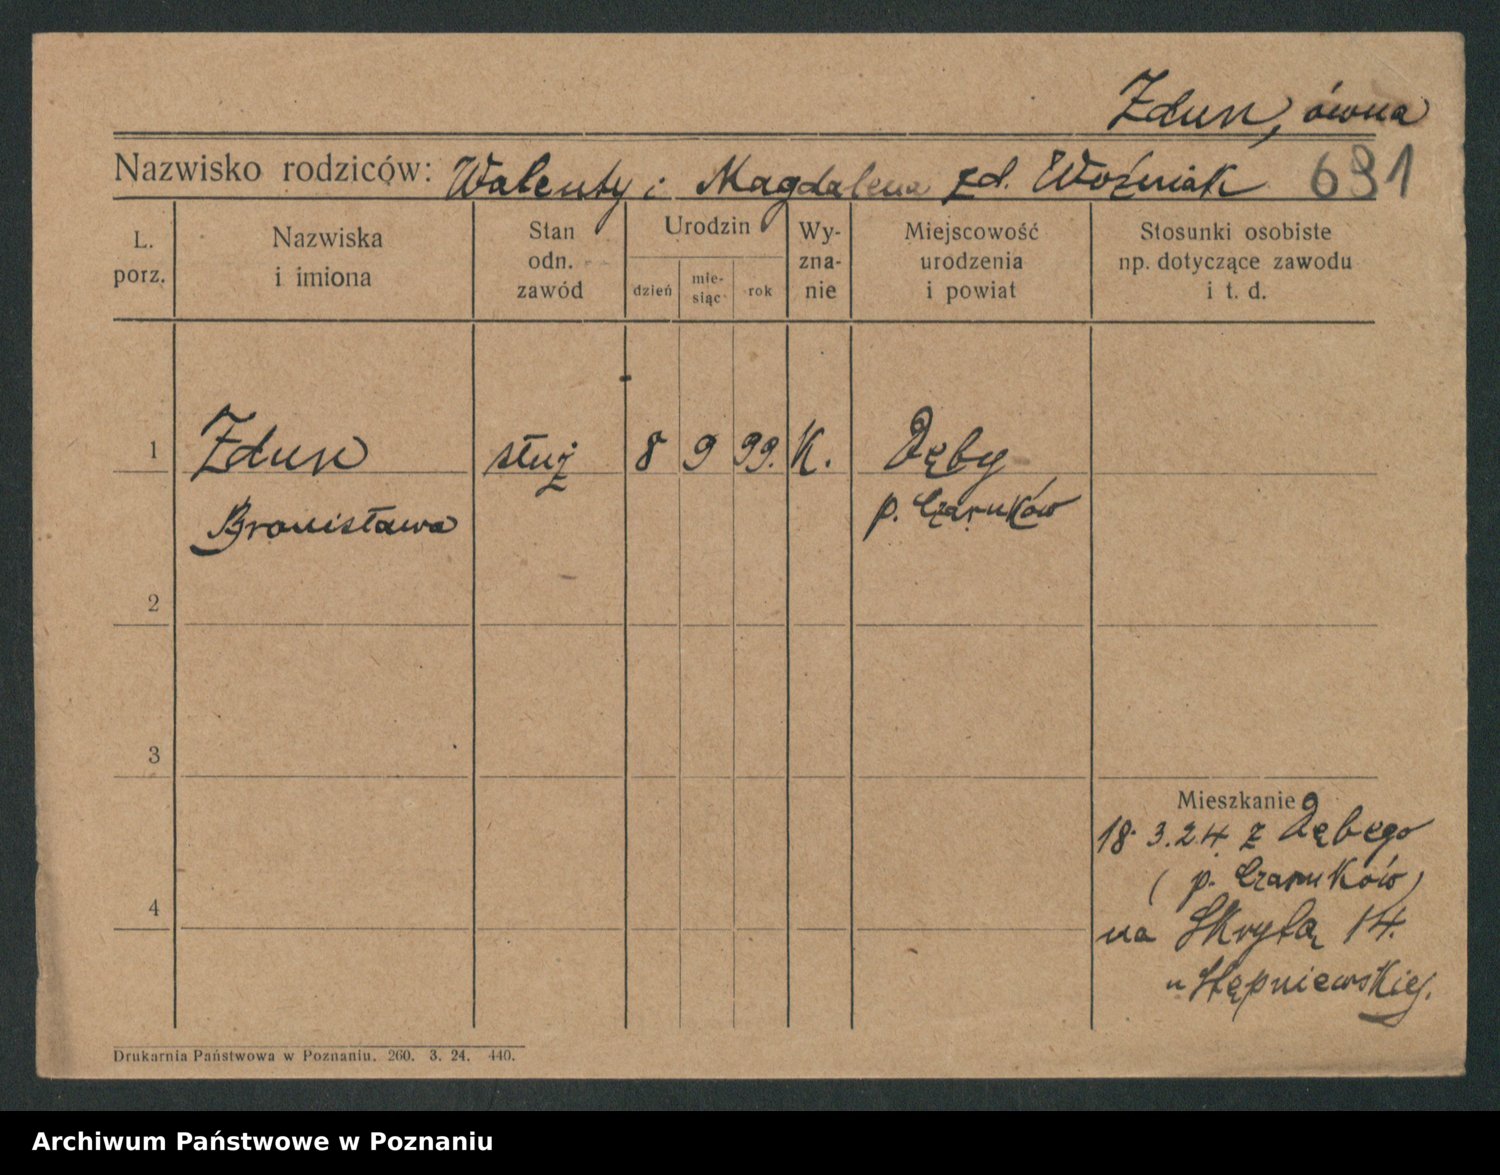 Zdun, ówna
Nazwisko rodziców: Walenty i Magdalena zd. Woźniak 691
L. porz. Nazwiska i imiona Stan odn. zawód Urodzin dzień mie-siąc rok Wy-zna-nie Miejscowość urodzenia i powiat Stosunki osobiste np. dotyczące zawodu i t. d.
1 Zdun służ 8 9 99. K. Dęby
Bronisława p. Czarnków
2
3
Mieszkanie
18.3.24 z Dębego
(p. Czarnków)
4
na Skrytą 14.
u Stępniewskiej.
Drukarnia Państwowa w Poznaniu. 260. 3. 24. 440.
Archiwum Państwowe w Poznaniu